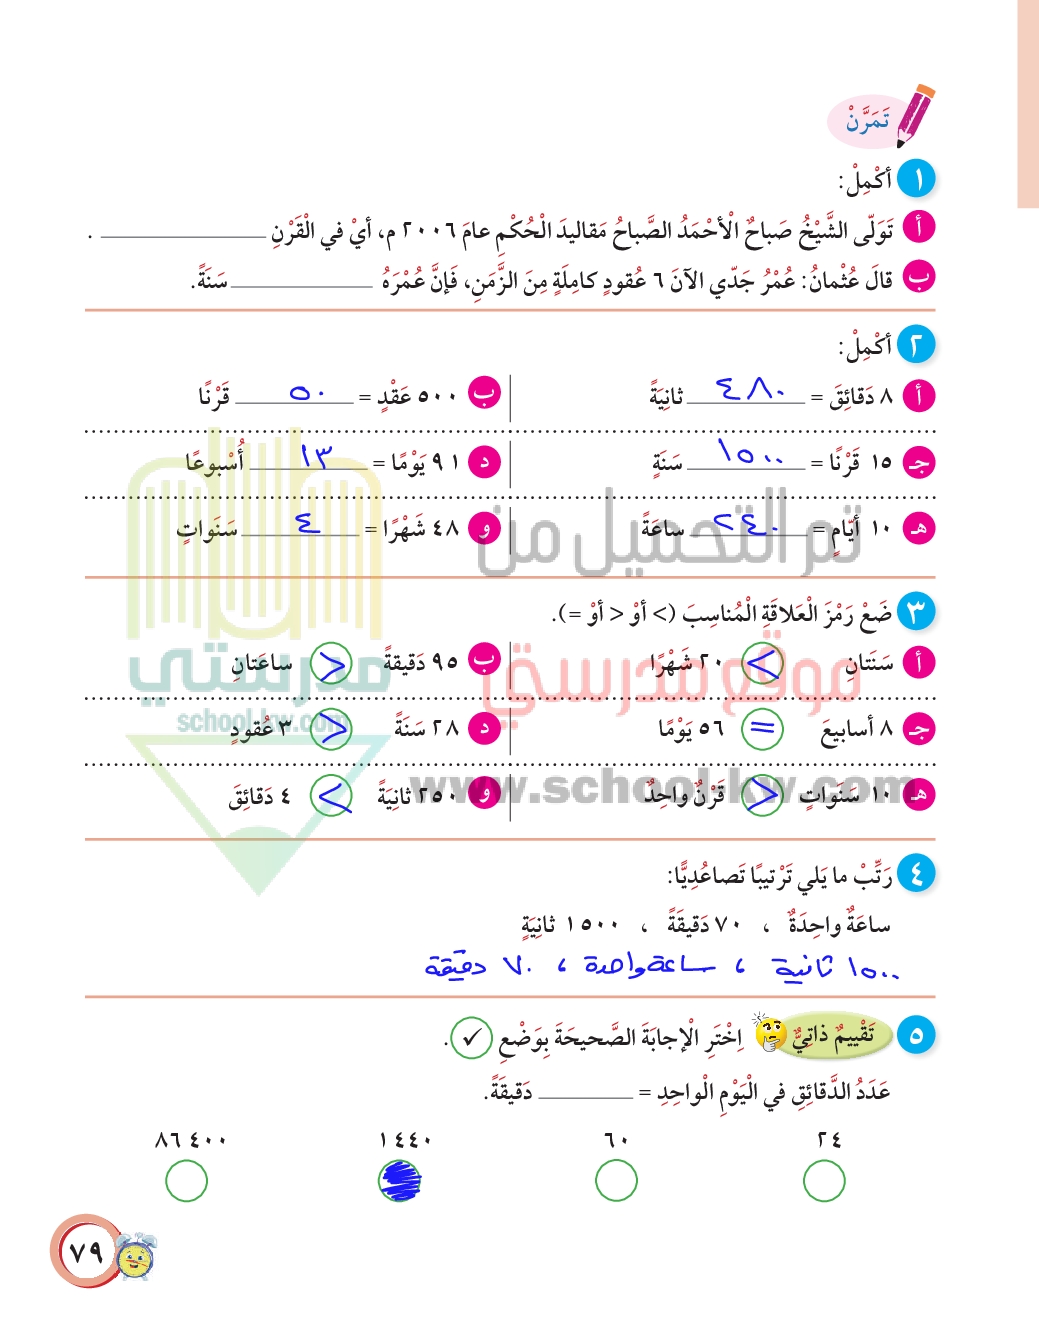 تَمَرَّنْ
١ أَكْمِلْ:
أ تَوَلّى الشَّيْخُ صَباحُ الْأَحْمَدُ الصَّباحُ مَقاليدَ الْحُكْمِ عامَ ٢٠٠٦ م، أيْ في الْقَرْنِ ____________ .
ب قالَ عُثْمانُ: عُمْرُ جَدّي الآنَ ٦ عُقودٍ كامِلَةٍ مِنَ الزَّمَنِ، فَإنَّ عُمْرَهُ ____________ سَنَةً.
٢ أَكْمِلْ:
أ ٨ دَقائِقَ = ٤٨٠ ثانِيَةً ب ٥٠٠ عَقْدٍ = ٥٠ قَرْنًا
جـ ١٥ قَرْنًا = ١٥٠٠ سَنَةٍ د ٩١ يَوْمًا = ١٣ أُسْبوعًا
هـ ١٠ أيّامٍ = ٢٤٠ ساعَةً و ٤٨ شَهْرًا = ٤ سَنَواتٍ
تم التحميل من
٣ ضَعْ رَمْزَ الْعَلاقَةِ الْمُناسِبَ (> أوْ < أوْ =).
أ سَنَتَانِ > ٢٠ شَهْرًا ب ٩٥ دَقيقةً < ساعَتانِ
موقع مدرستي
مدرستي
school-kw.com
جـ ٨ أسابيعَ = ٥٦ يَوْمًا د ٢٨ سَنَةً < ٣ عُقودٍ
www.school-kw.com
هـ ١٠ سَنَواتٍ < قَرْنٌ واحِدٌ و ٢٥٠ ثانِيَةً > ٤ دَقائِقَ
٤ رَتِّبْ ما يَلي تَرْتيبًا تَصاعُدِيًّا:
ساعَةٌ واحِدَةٌ ، ٧٠ دَقيقَةً ، ١٥٠٠ ثانِيَةٍ
١٥٠٠ ثانية ، ساعة واحدة ، ٧٠ دقيقة
٥ تَقْييمٌ ذاتِيٌّ اِخْتَرِ الْإجابَةَ الصَّحيحَةَ بِوَضْعِ ✓ .
عَدَدُ الدَّقائِقِ في الْيَوْمِ الْواحِدِ = ________ دَقيقَةً.
٢٤ ٦٠ ١٤٤٠ ٨٦٤٠٠
٧٩